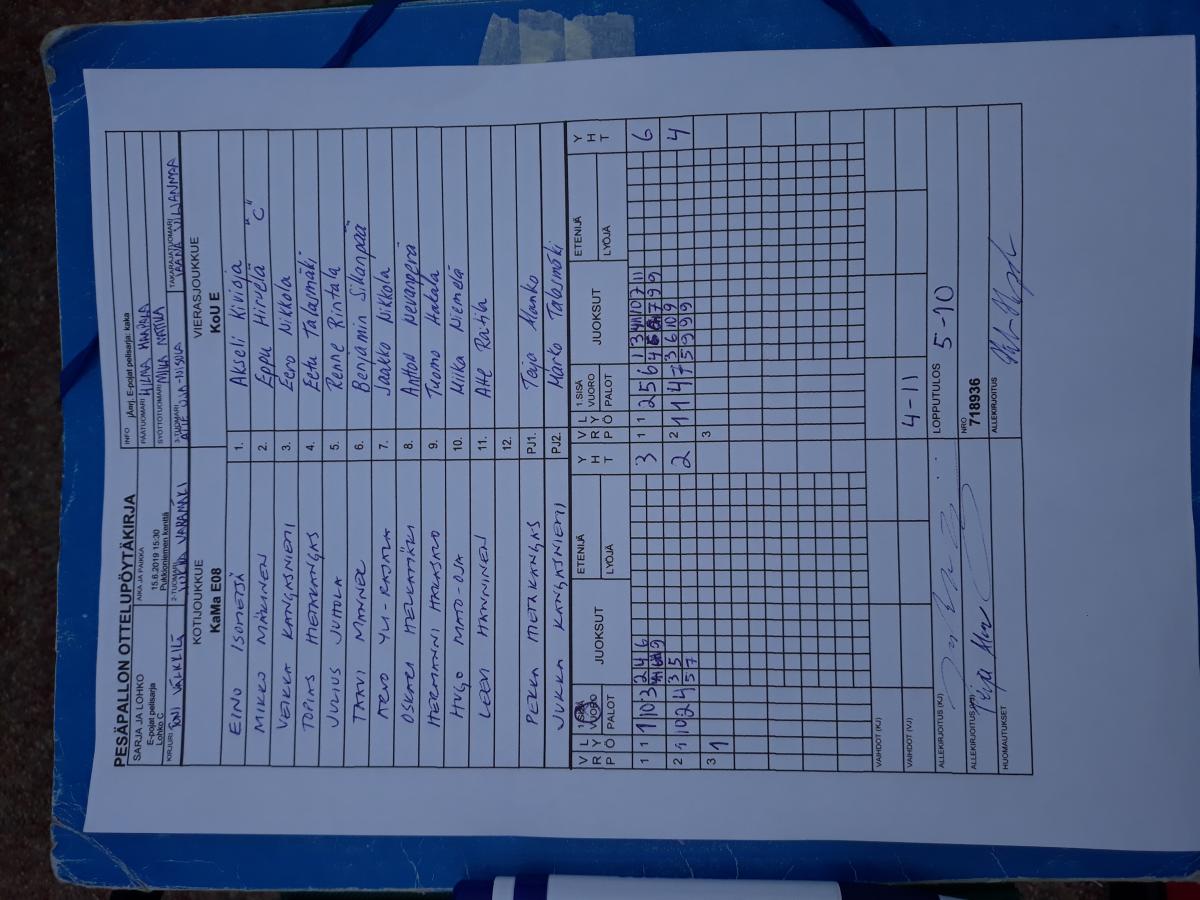 PESÄPALLON OTTELUPÖYTÄKIRJA
SARJA JA LOHKO
E-pojat pelisarja
Lohko C
AIKA JA PAIKKA
15.6.2019 15:30
Pukkioniemen kenttä
INFO jÄrrj. E-pojat pelisarja: kaka
PÄÄTUOMARI HILMA HAAPALA
SYÖTTÖTUOMARI MIILA MATTILA
KIRJURI TONI VÄLKKILÄ
2-TUOMARI
3-TUOMARI
TAKARAJATUOMARI JAANA VILJANMAA
KOTIJOUKKUE
KaMa E08
VIERASJOUKKUE
KoU E
EINO ISOMETSÄ 1. Akseli Kivioja
MIKKO MÄKINEN 2. Eppu Hirvelä "C"
VEIKKA KANGASNIEMI 3. Eero Nikkola
TOPIAS HIETAKANGAS 4. Eetu Talasmäki
JULIUS JUHOLA 5. Renne Rintala
TAAVI MANNEL 6. Benjamin Sillanpää
ARVO YLI-RAJALA 7. Jaakko Nikkola
OSKARI HELKAMÄKI 8. Antton Nevanperä
HERMANNI HAKASALO 9. Tuomo Hakala
HUGO MATO-OJA 10. Miika Niemelä
LEEVI HÄNNINEN 11. Atte Rajala
12.
PEKKA HIETAKANGAS PJ1. Teijo Manko
JUKKA KANGASNIEMI PJ2. Marko Talasmäki
VRP LYÖ 1 SISÄ VUORO PALOT JUOKSUT ETENIJÄ LYÖJÄ YHT VRP LYÖ 1 SISÄ VUORO PALOT JUOKSUT ETENIJÄ LYÖJÄ YHT
1 1 1 10 3 2 4 6 3 1 1 2 5 6 1 3 10 7 11 6
4 9 4 7 9 9
2 1 10 2 4 3 5 2 2 1 1 4 7 3 6 10 9 4
5 7 5 9 9 9
3 1 3
VAIHDOT (KJ)
VAIHDOT (VJ) 4-11
ALLEKIRJOITUS (KJ)
LOPPUTULOS 5-10
ALLEKIRJOITUS (VJ)
NRO
718936
HUOMAUTUKSET
ALLEKIRJOITUS